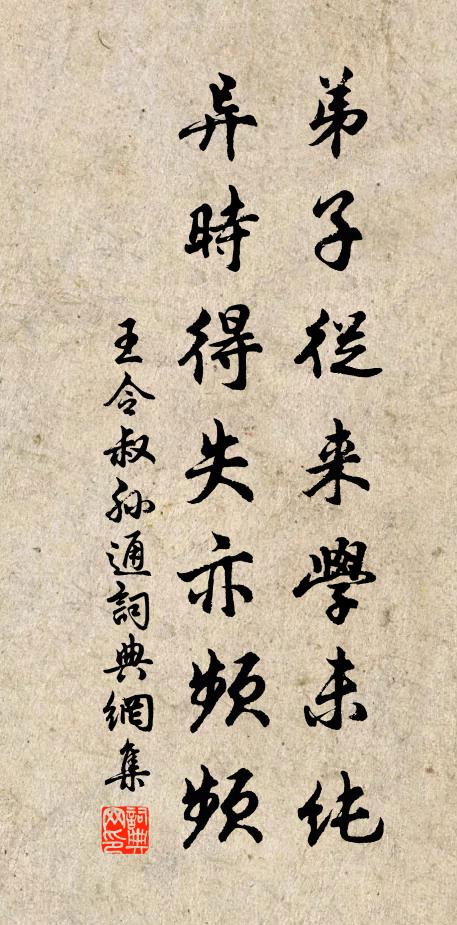 弟子從来學未純
异時得失亦頻頻
王令叔孫通詞典網集
詞典网印